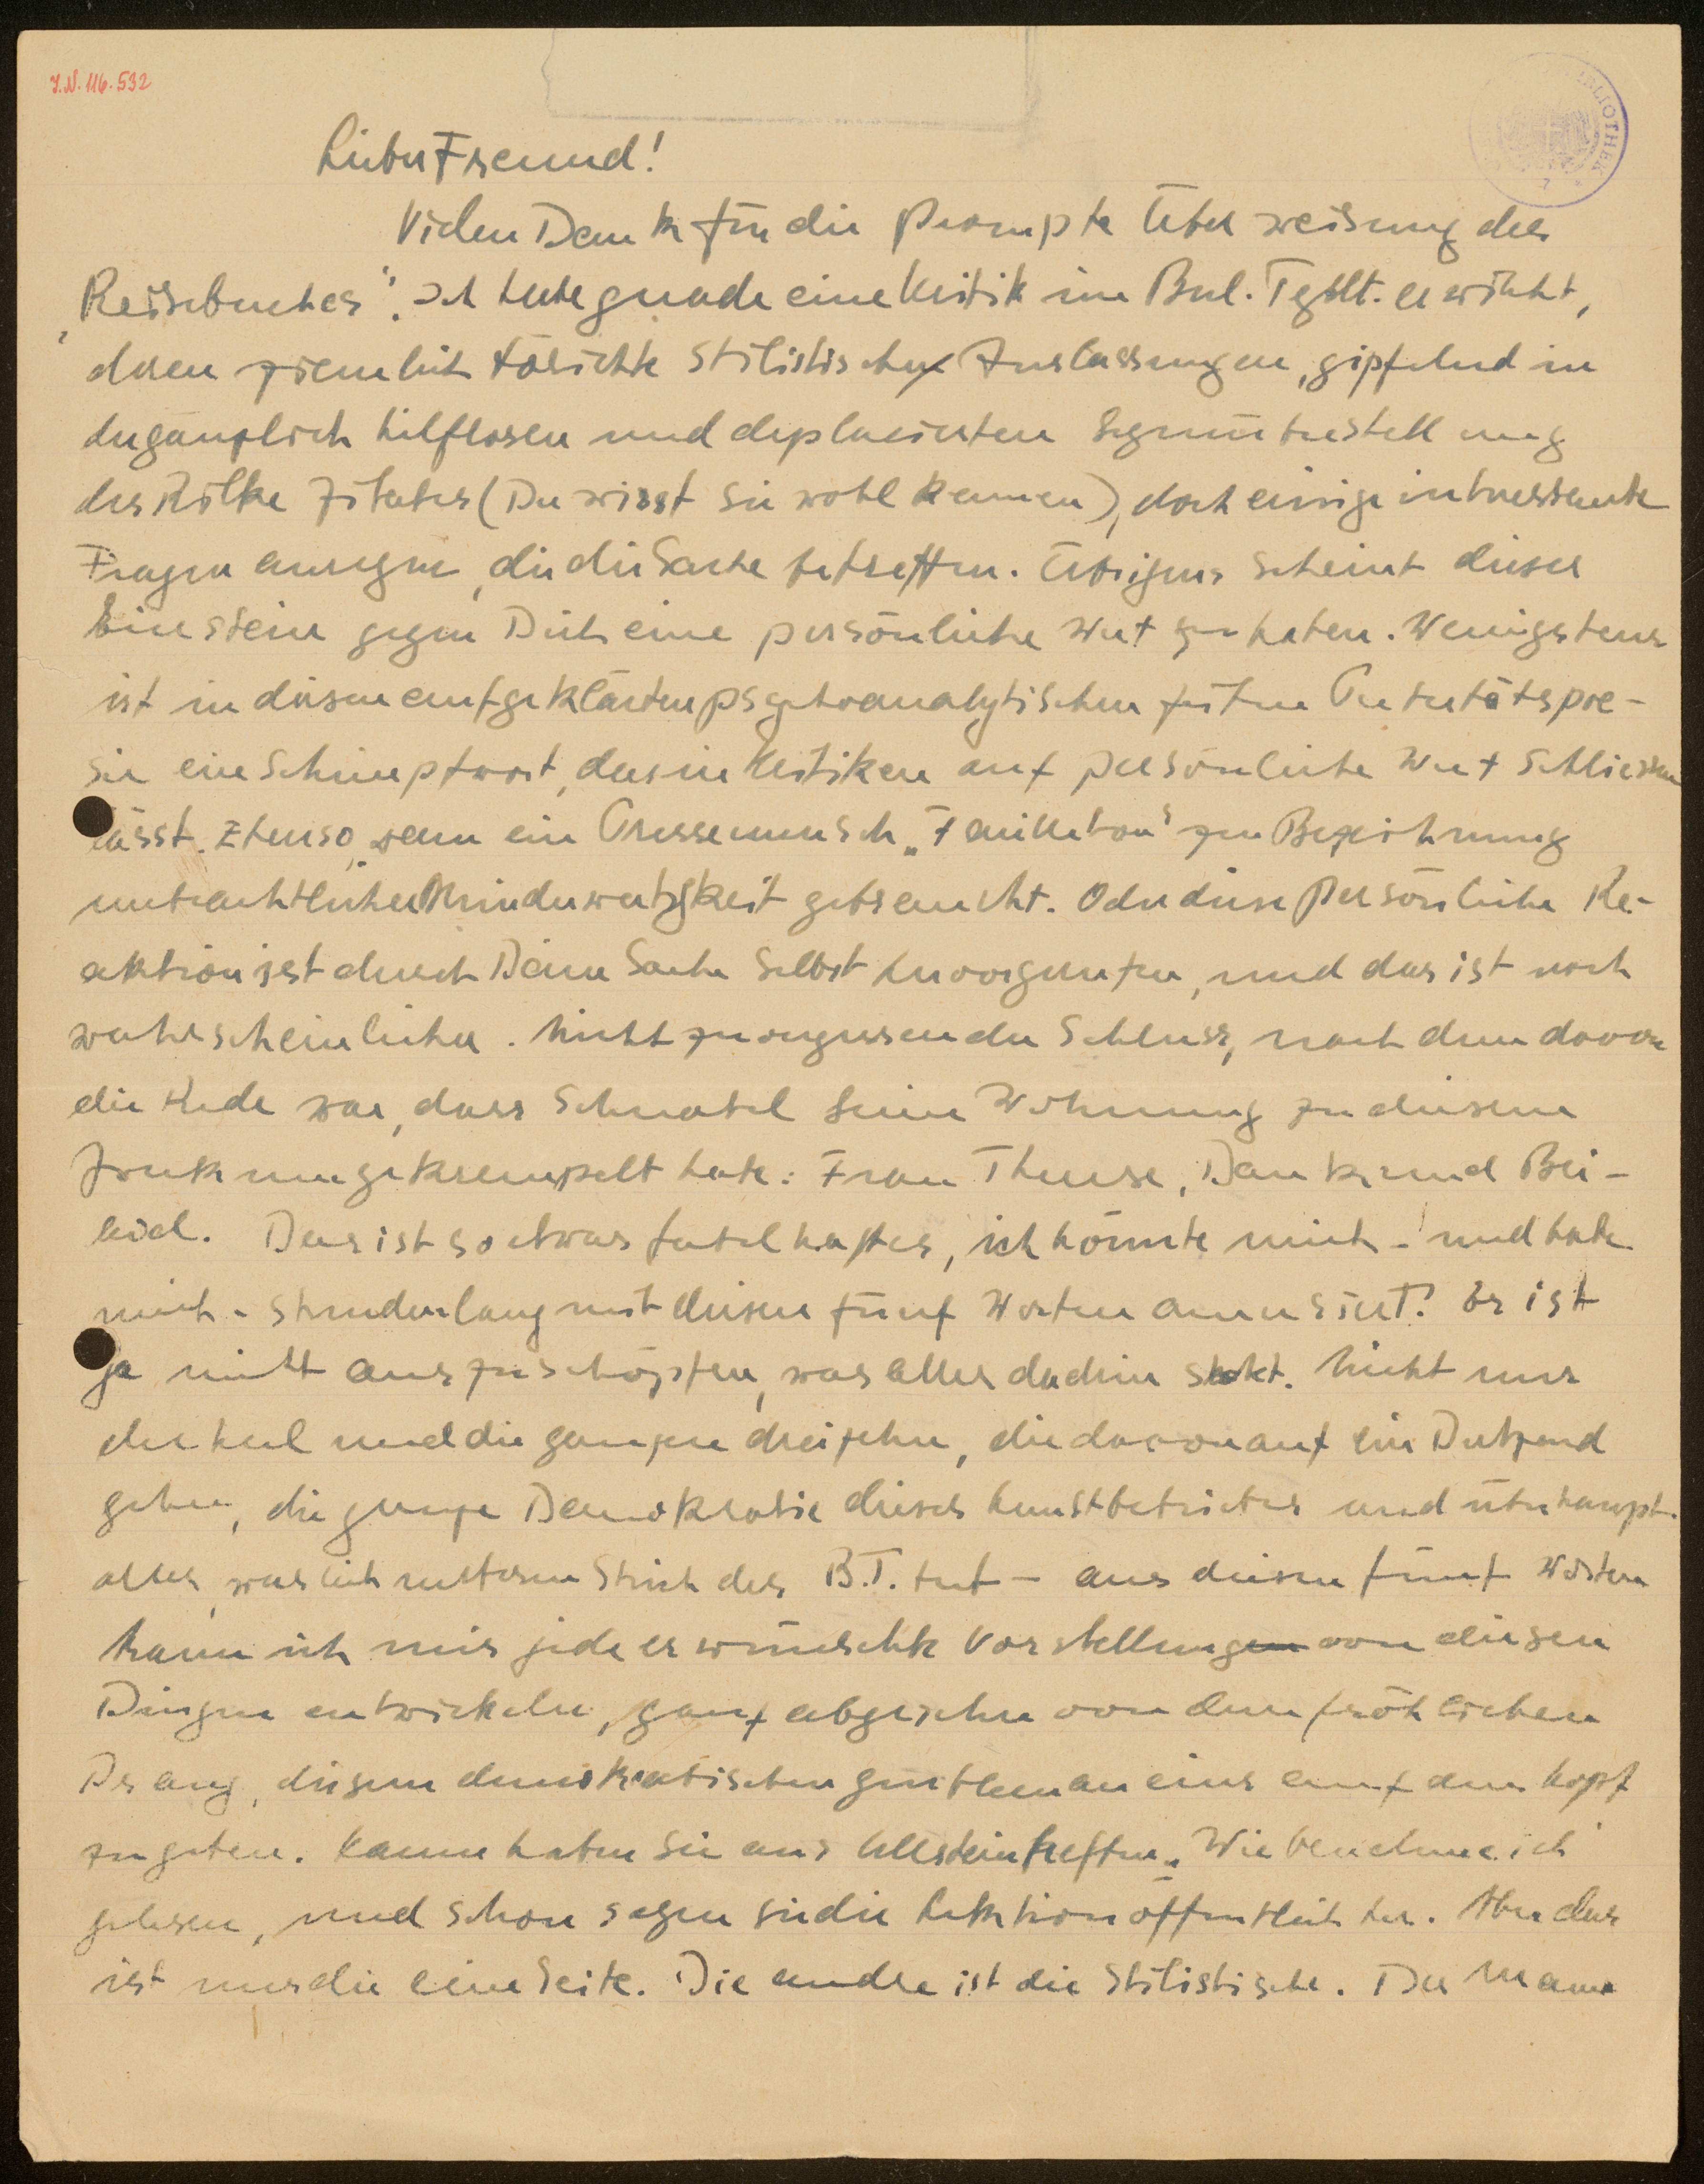 J.N. 116.532
BIBLIOTHEK
Lieber Freund!
Vielen Dank für die prompte Überweisung des
„Reisebuches“. Ich habe gerade eine Kritik im Berl. Tgblt. erwischt,
deren ziemlich törichte stilistische Auslassungen, gipfelnd in
der gänzlich hilflosen und deplacierten Gegenüberstellung
des Rilke Zitates (Du wirst sie wohl kennen), doch einige interessante
Fragen anregen, die die Sache betreffen. Übrigens scheint dieser
Einstein gegen Dich eine persönliche Wut zu haben. Wenigstens
ist in diesen aufgeklärten psychoanalytischen Zeiten Pubertätspoe-
sie ein Schimpfwort, das in Kritiken auf persönliche Wut schliessen
lässt. Ebenso, wenn ein Pressemensch „Feuilleton“ zur Bezeichnung
unbeachtlicher Minderwertigkeit gebraucht. Oder diese persönliche Re-
aktion ist durch Deine Sache selbst hervorgerufen, und das ist noch
wahrscheinlicher. Nicht zu vergessen der Schluss, nach dem davon
die Rede war, dass Schnabel seine Wohnung zu diesem
Zweck umgekrempelt habe: Frau Therese, Dank und Bei-
leid. Das ist so etwas fabelhaftes, ich könnte mich – und habe
mich – stundenlang mit diesen fünf Worten amüsiert! Es ist
ja nicht auszuschöpfen, was alles dadrin steckt. Nicht nur
der Kerl und die ganzen dreizehn, die davon auf ein Dutzend
gehen, die ganze Demokratie dieses Kunstbetriebes und überhaupt
alles, was sich unterm Strich des B.T. tut – aus diesen fünf Worten
kann ich mir jede erwünschte Vorstellung von diesen
Dingen entwickeln, ganz abgesehen von dem fröhlichen
Drang, diesem demokratischen Gentleman eins auf den Kopf
zu geben. Kaum haben sie aus Ullsteinheften „Wie benehme ich“
gelesen, und schon sagen sie die Lektion öffentlich her. Aber das
ist nur die eine Seite. Die andre ist die stilistische. Der Mann